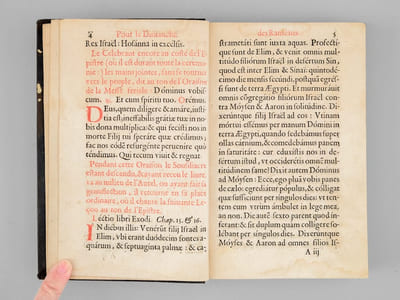 4 Pour le Dimanche
Rex Israël: Hosanna in excelsis.
Le Celebrant encore au costé de l'E-
pistre (où il est durant toute la ceremo-
nie:) les mains jointes, sans se tourner
vers le peuple, dit au ton de l'Oraison
de la Messe feriale. Dóminus vobís-
cum. ℟. Et cum spíritu tuo. Orémus.
DEus, quem dilígere & amáre, justí-
tia est, ineffábilis grátiæ tuæ in no-
bis dona multíplica: & qui fecísti nos in
morte Fílij tui speráre quæ crédimus;
fac nos eódé resurgénte perveníre quò
téndimus. Qui tecum vivit & regnat
Pendant cette Oraison le Sousdiacre
estant descendu, & ayant receu le livre,
va au milieu de l'Autel, où ayant fait sa
genuflection, il retourne en sa place
ordinaire, où il chante la suivante Le-
çon au ton de l'Epistre.
Léctio libri Exodi. Chap. 15. & 16.
IN diébus illis: Venérút fílij Israël in
Elim, ubi erant duódecim fontes a-
quárum, & septuagínta palmæ: & ca-
des Rameaux. 5
strametáti sunt juxta aquas. Profectí-
que sunt de Elim, & venit omnis mul-
titúdo filiórum Israël in desértum Sin,
quod est inter Elim & Sínai: quintodé-
cimo die mensis secúndi, postquã egrés-
si sunt de terra Ægypti. Et murmurávit
omnis cõgregátio filiórum Israël con-
tra Móysen & Aaron in solitúdine. Di-
xerúntque fílij Israël ad eos: Vtinam
mórtui essémus per manum Dómini in
terra Ægypti, quando sedebámus super
ollas cárnium, & comedebámus panem
in saturitáte: cur eduxístis nos in de-
sértum istud, ut occiderétis omné mul-
titúdinem fame? Dixit autem Dóminus
ad Móysen: Ecce, ego pluã vobis panes
de cælo: egrediátur pópulus, & cólligat
quæ suffíciunt per síngulos dies: ut ten-
tem eum utrùm ámbulet in lege mea,
an non. Die auté sexto parent quod ín-
ferant: & sit duplum quàm collígere so-
lébant per síngulos dies. Dixerúntque
Móyses & Aaron ad omnes fílios Is-
A iij